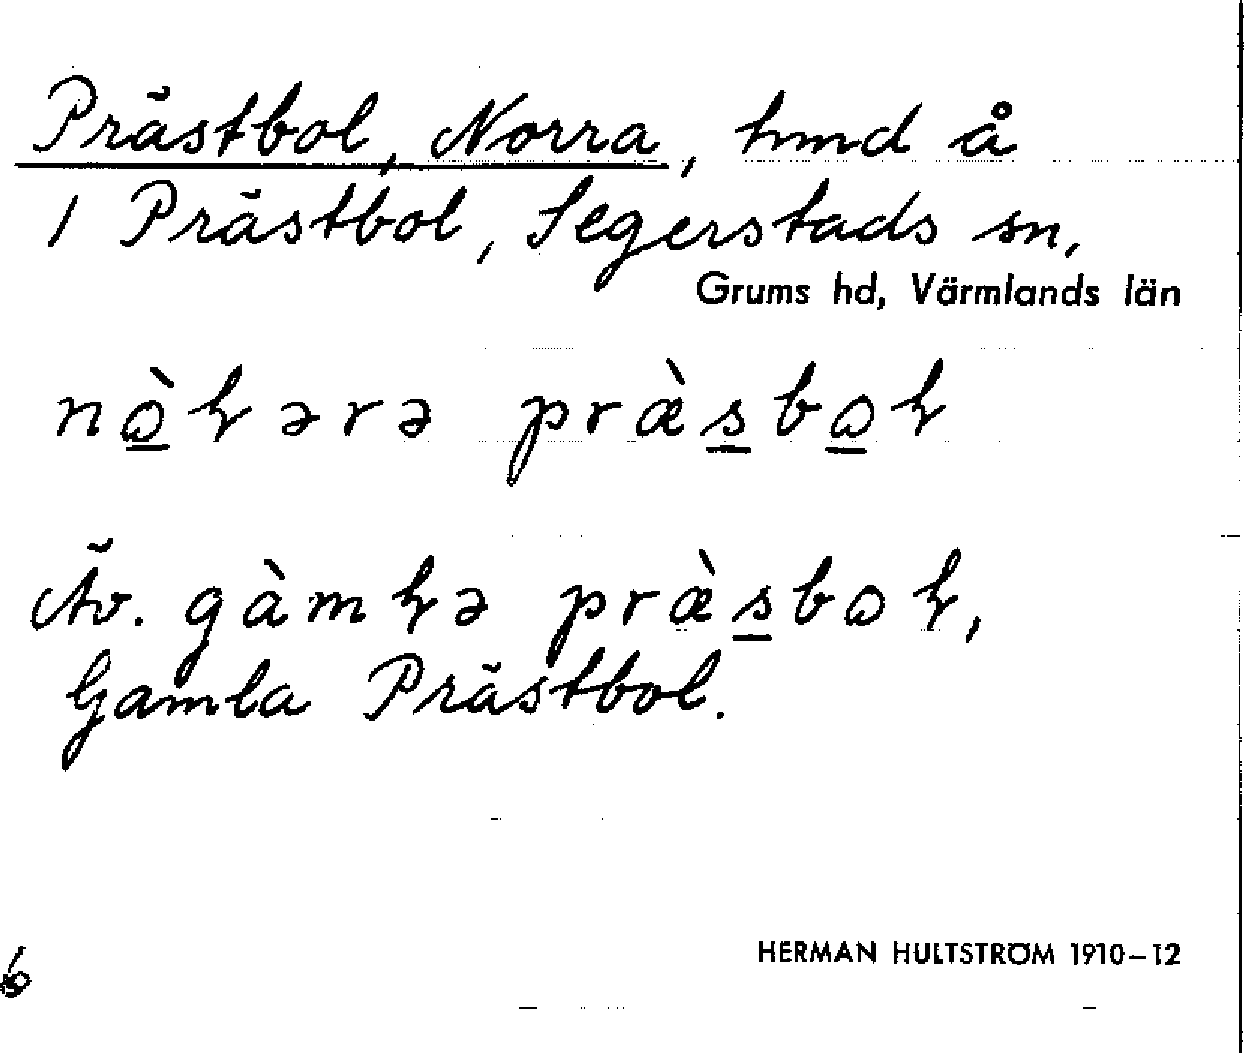 Prästbol, Norra, hmd å
1 Prästbol, Segerstads sn,
Grums hd, Värmlands län
nò̲ɽərə præ̀s̲bo̲ɽ
Äv. gàmɽə præ̀s̲boɽ,
Gamla Prästbol.
HERMAN HULTSTRÖM 1910–12